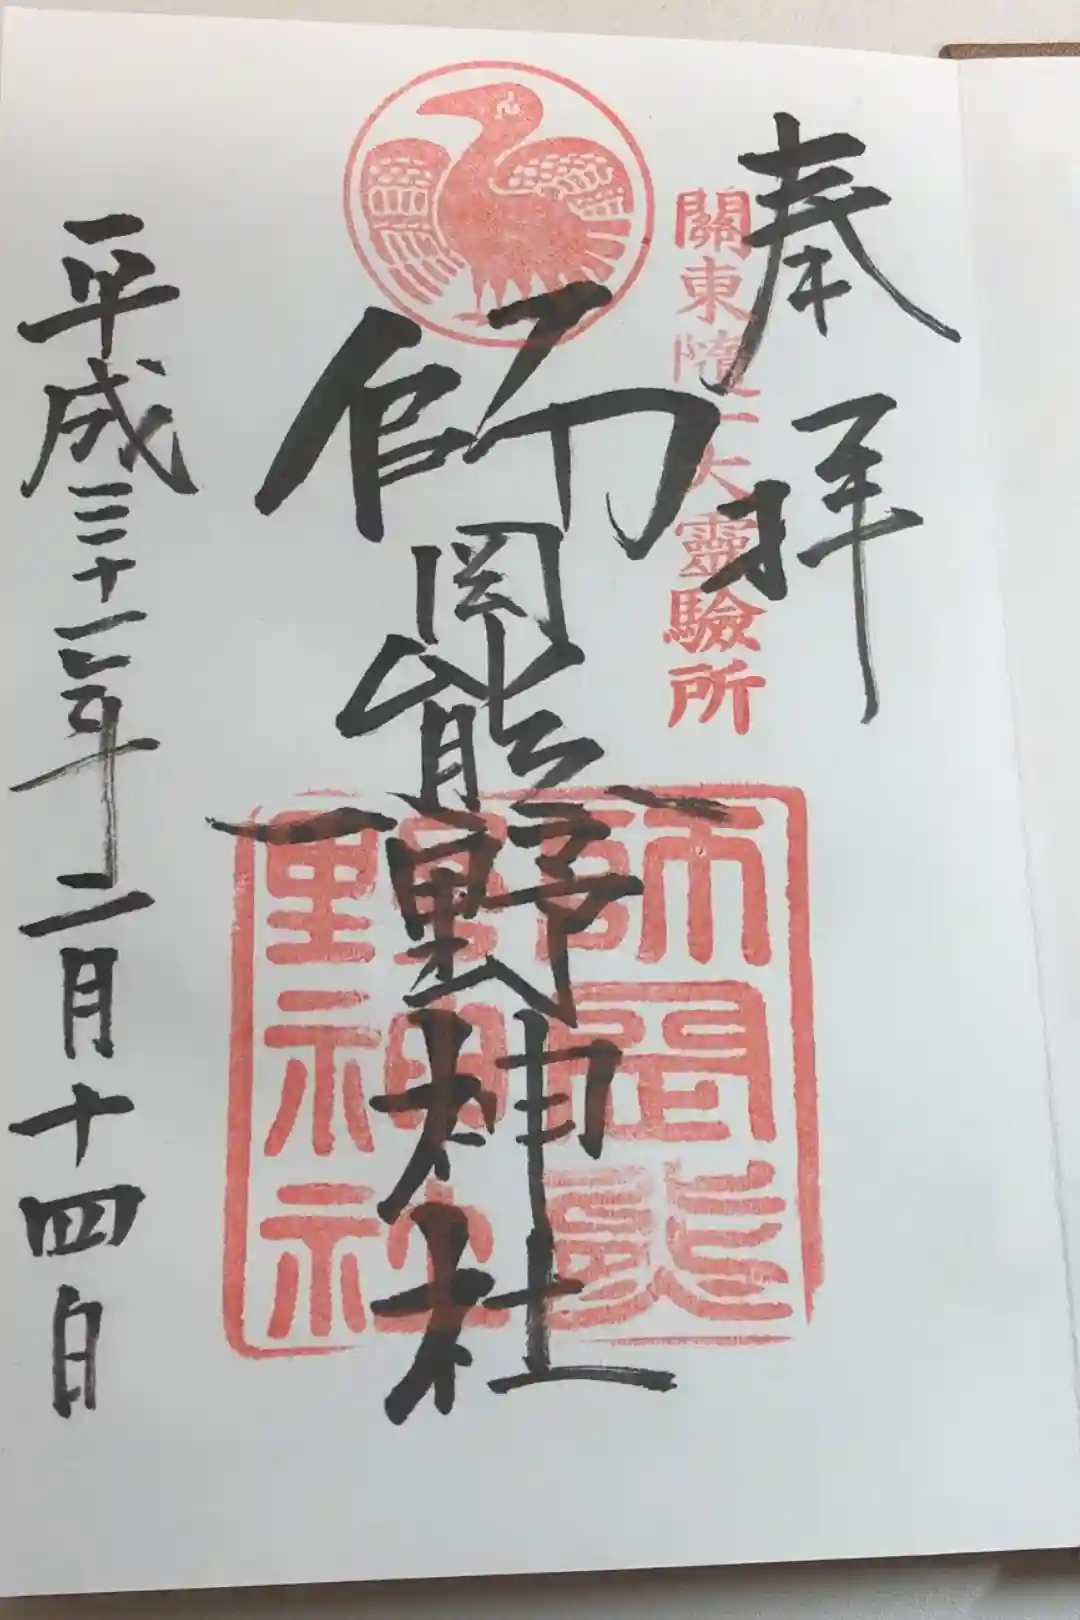 奉拝
關東随一大靈驗所
師岡熊野神社
師岡熊野神社
平成三十一年二月十四日